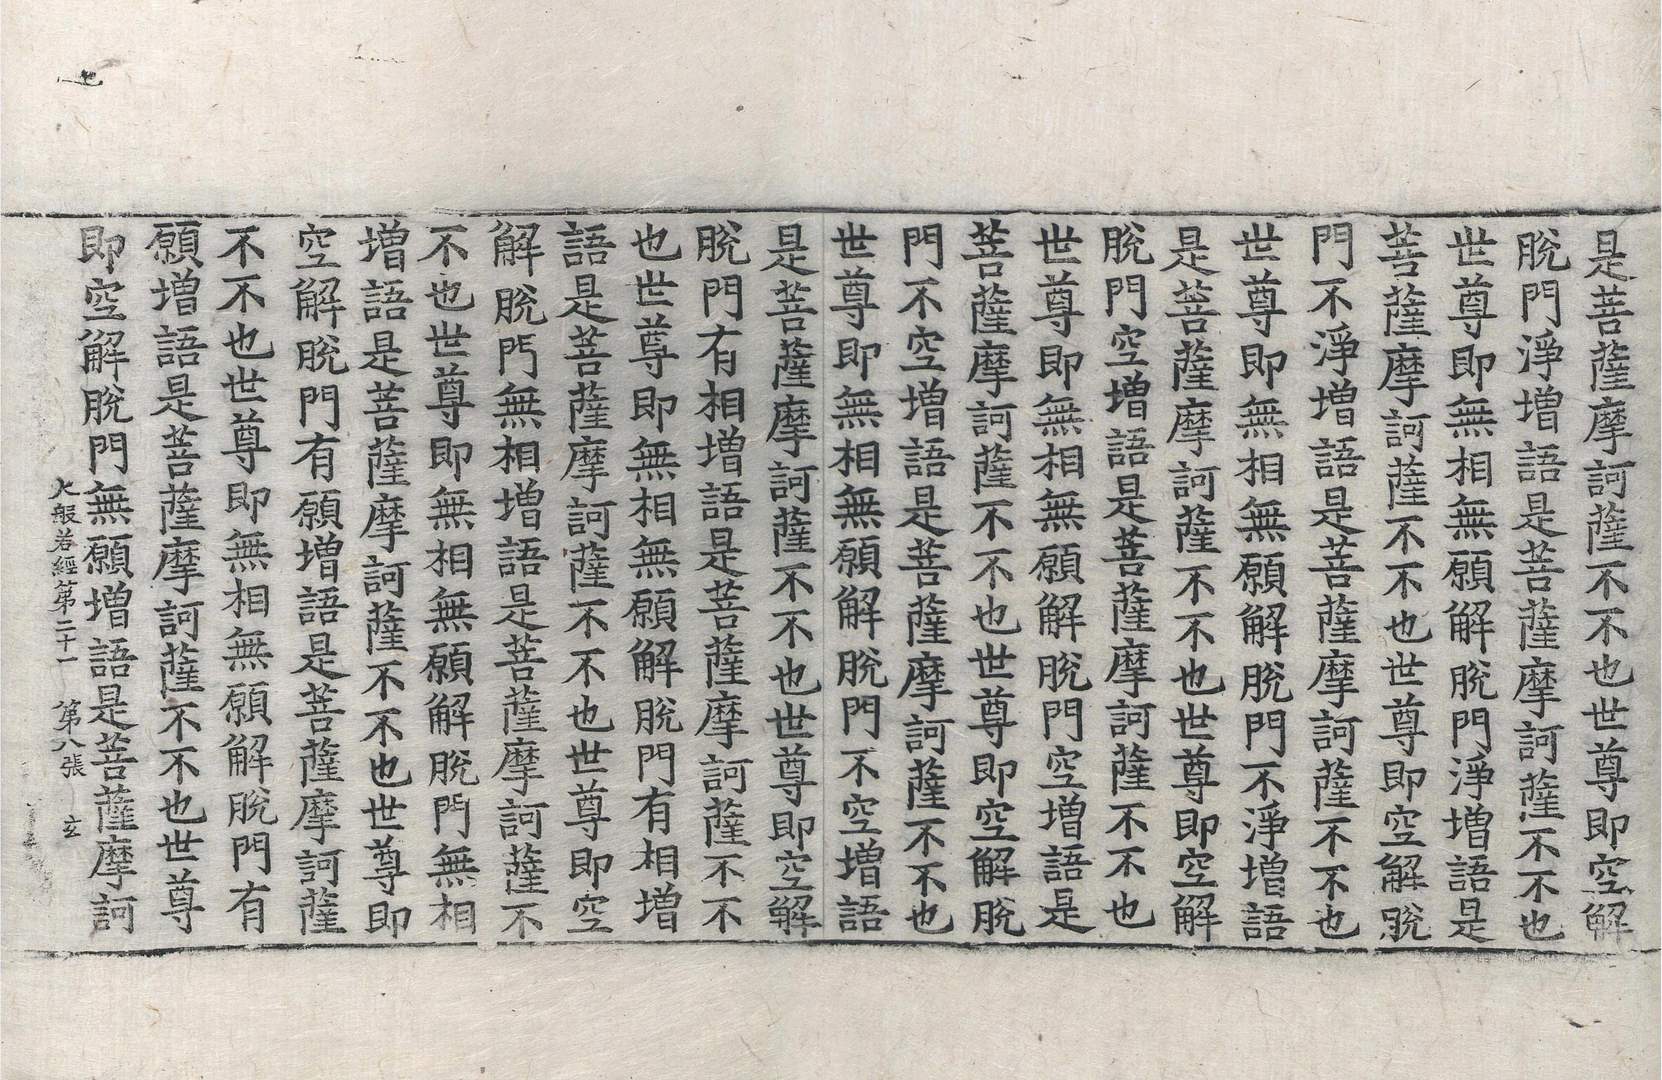 是菩薩摩訶薩不不也世尊即空解
脫門淨增語是菩薩摩訶薩不不也
世尊即無相無願解脫門淨增語是
菩薩摩訶薩不不也世尊即空解脫
門不淨增語是菩薩摩訶薩不不也
世尊即無相無願解脫門不淨增語
是菩薩摩訶薩不不也世尊即空解
脫門空增語是菩薩摩訶薩不不也
世尊即無相無願解脫門空增語是
菩薩摩訶薩不不也世尊即空解脫
門不空增語是菩薩摩訶薩不不也
世尊即無相無願解脫門不空增語
是菩薩摩訶薩不不也世尊即空解
脫門有相增語是菩薩摩訶薩不不
也世尊即無相無願解脫門有相增
語是菩薩摩訶薩不不也世尊即空
解脫門無相增語是菩薩摩訶薩不
不也世尊即無相無願解脫門無相
增語是菩薩摩訶薩不不也世尊即
空解脫門有願增語是菩薩摩訶薩
不不也世尊即無相無願解脫門有
願增語是菩薩摩訶薩不不也世尊
即空解脫門無願增語是菩薩摩訶
大般若經第二十一 第八張 玄